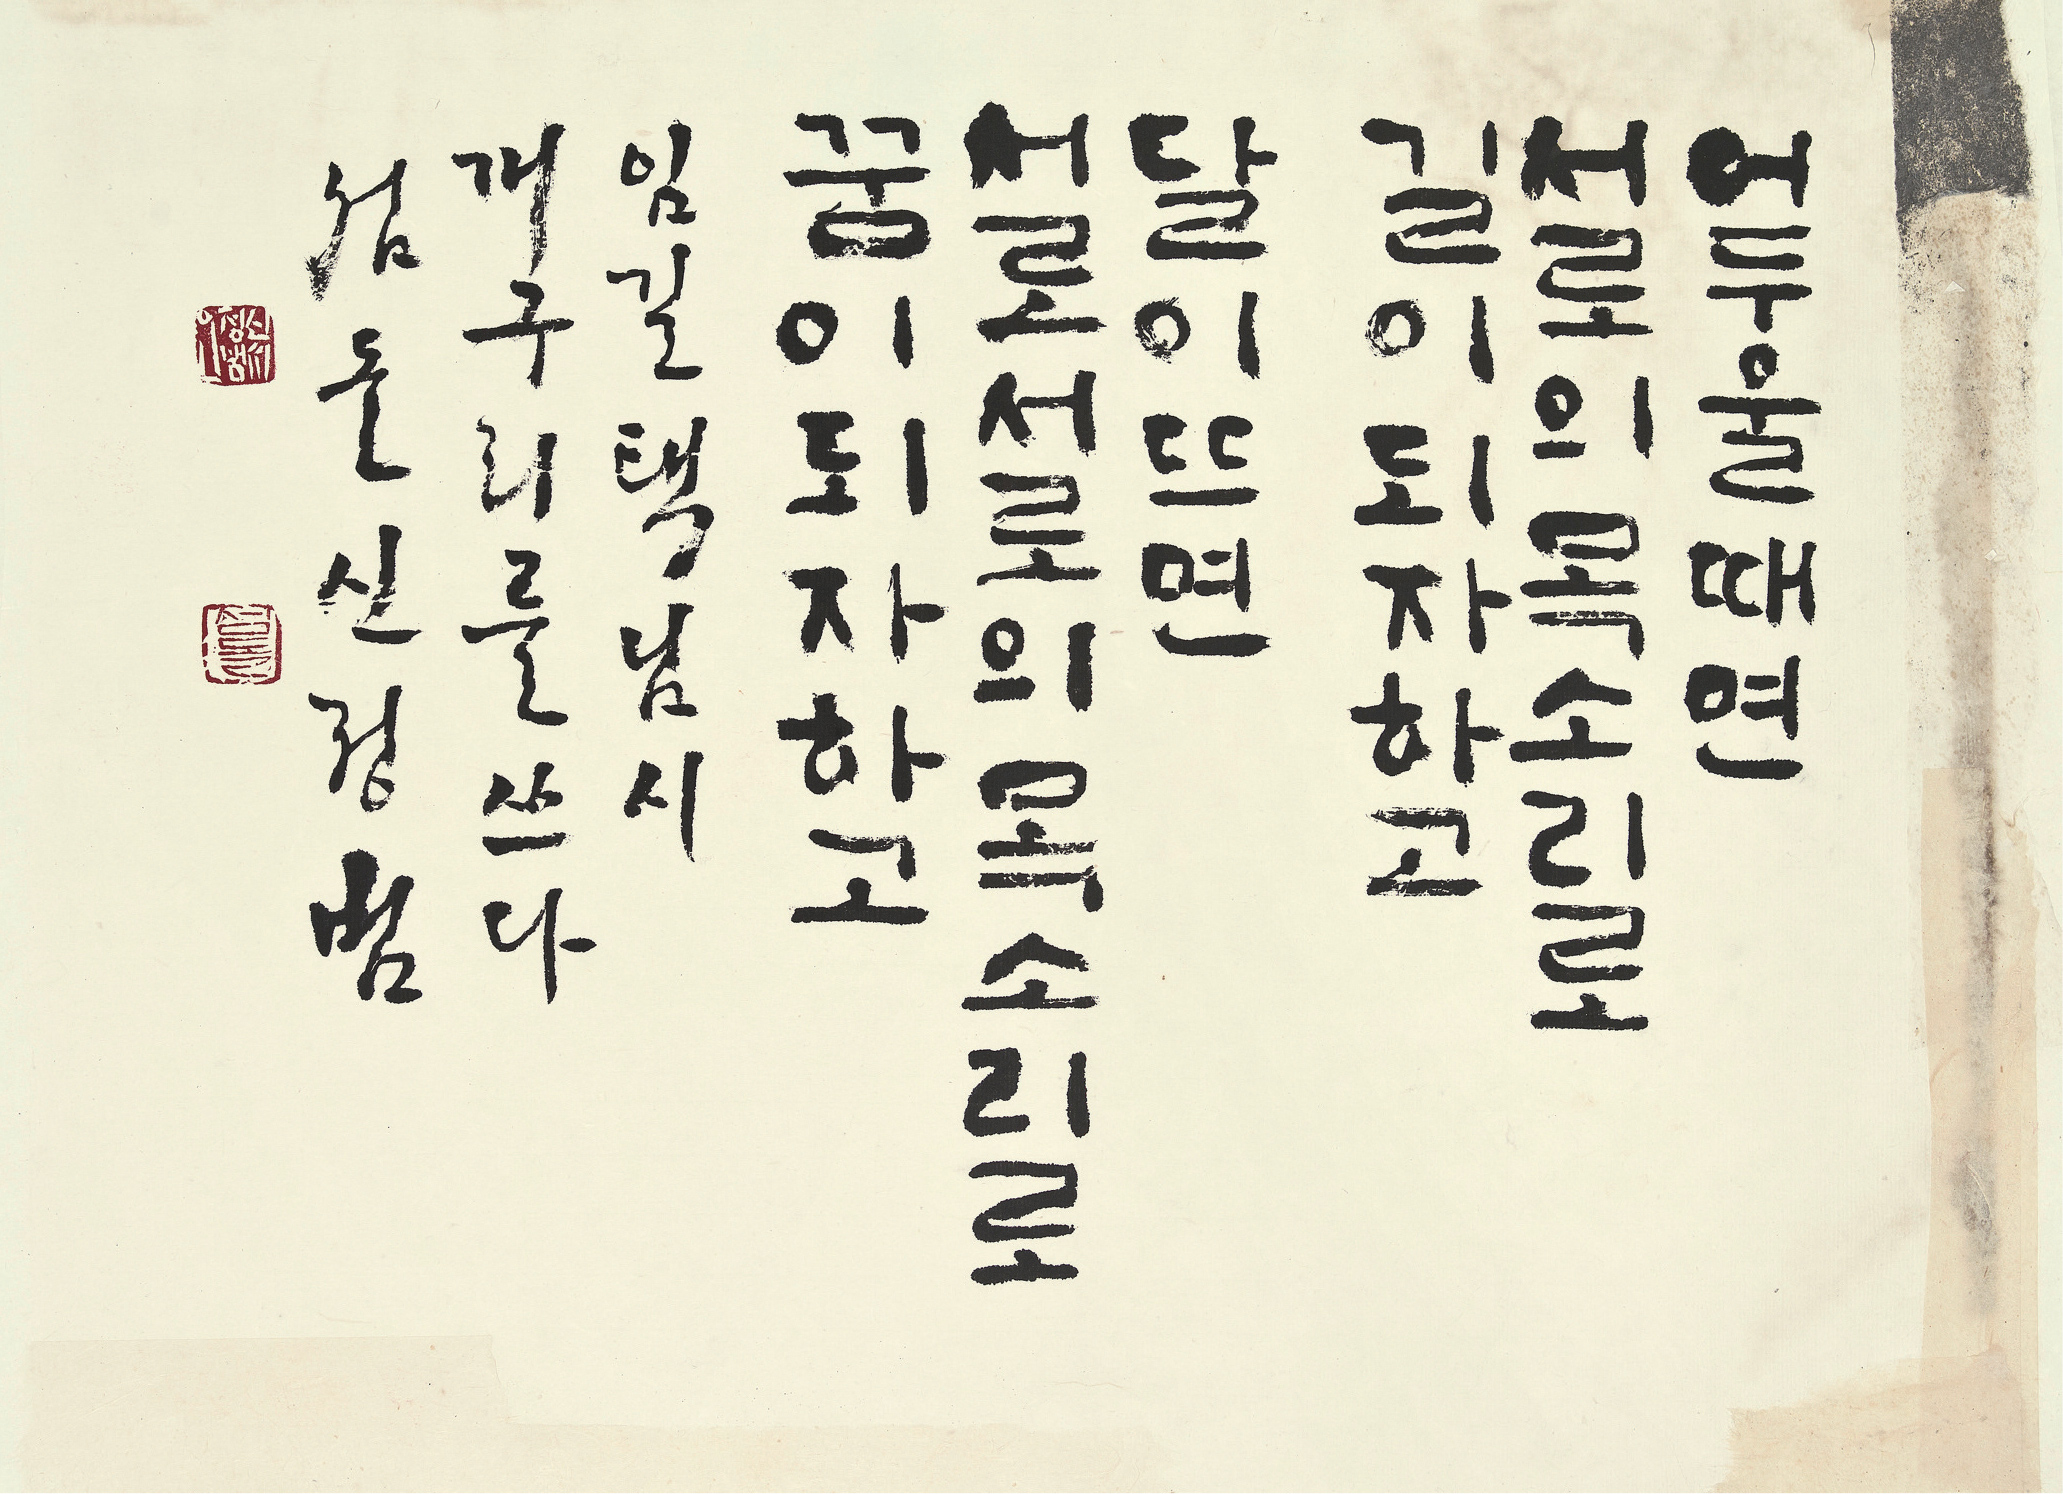 어두울 때면
서로의 목소리로
길이 되자 하고
달이 뜨면
서로서로의 목소리로
꿈이 되자 하고
임길택님 시
개구리를 쓰다
섬돌 신정범